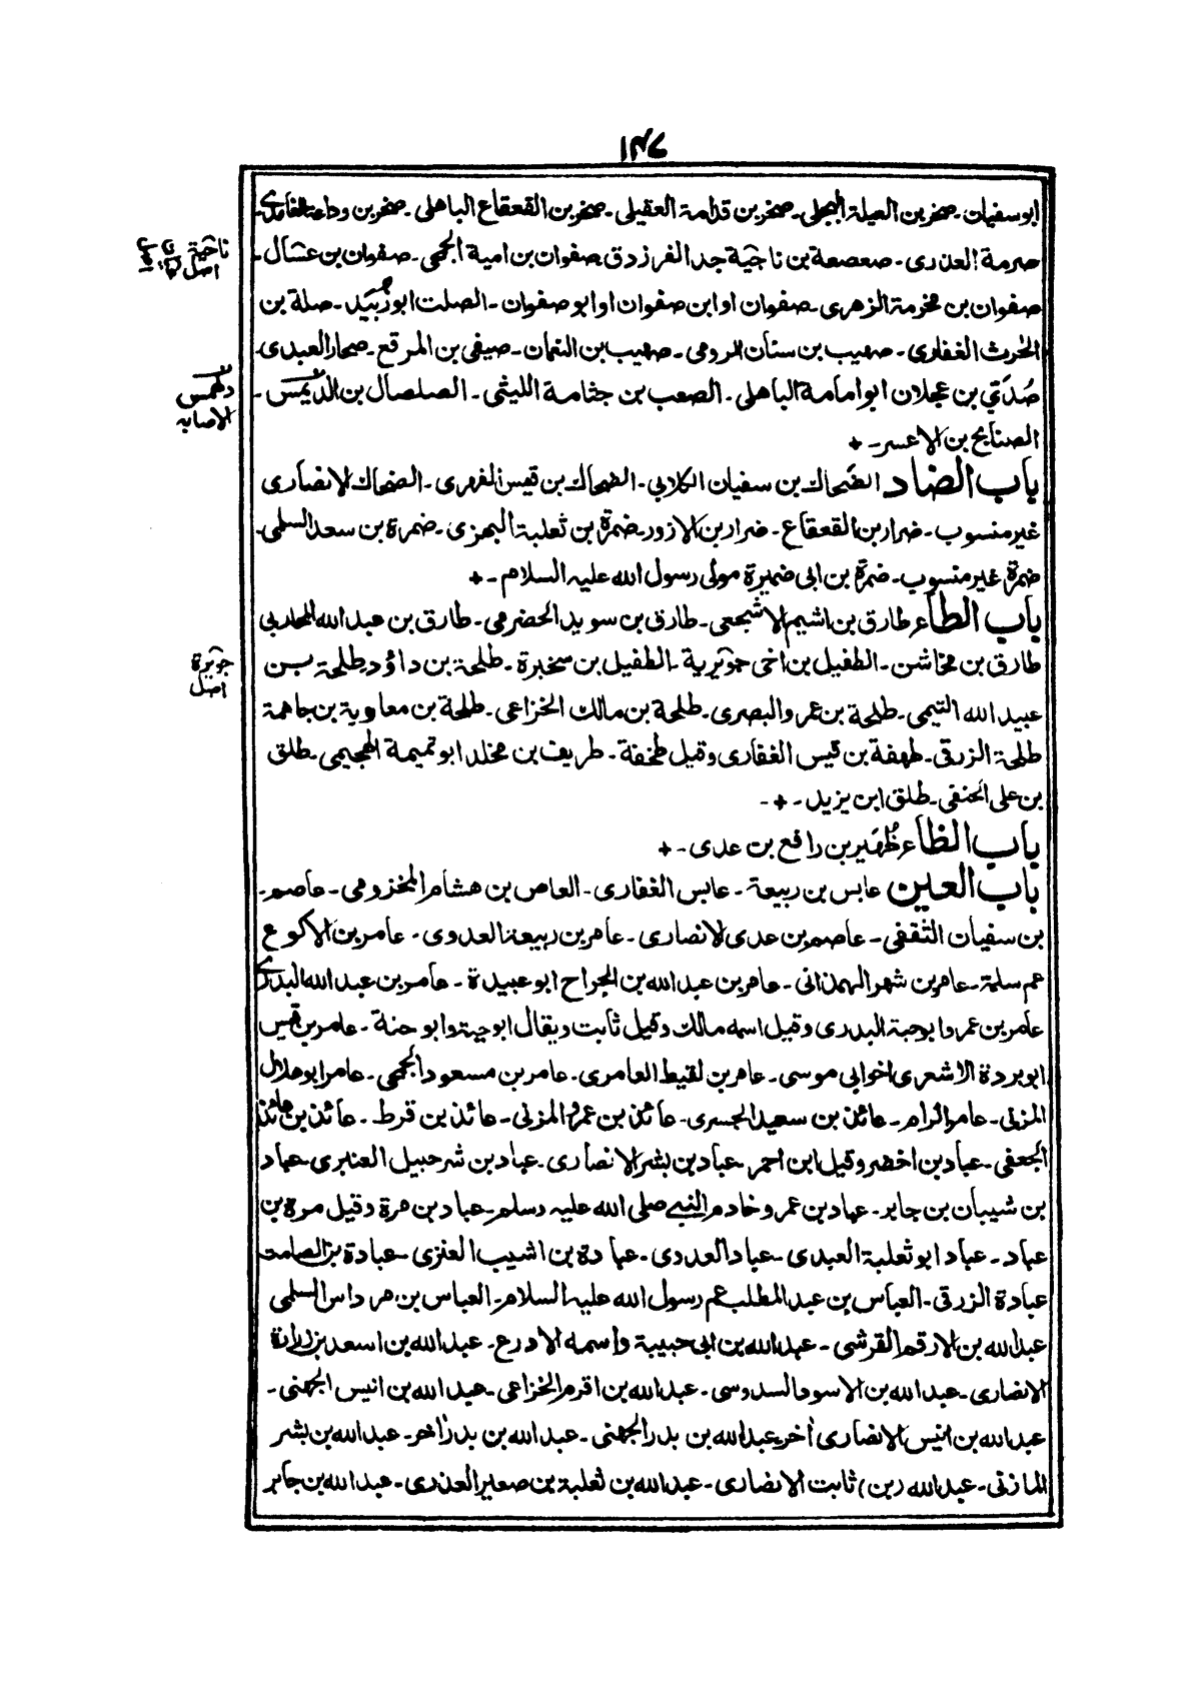 ١٤٧
ابوسفيان۔ صخر بن العيلة البجلى۔ صخر بن قدامة العقيلى۔ صخر بن القعقاع الباهلى۔ صخر بن وداعة الغامدى۔
صرمة العذرى۔ صعصعة بن ناجية جد الفرزدق صفوان بن امية الجمحى۔ صفوان بن عسّال۔
صفوان بن مخرمة الزهرى۔ صفوان او ابن صفوان او ابو صفوان۔ الصلت ابو زُبَيد۔ صلة بن
الحرث الغفارى۔ صهيب بن سنان الرومى۔ صهيب بن النعمان۔ صيفى بن المرقع۔ صحار العبدى۔
صُدَيّ بن عجلان ابو امامة الباهلى۔ الصعب بن جثامة الليثى۔ الصلصال بن الديمس۔
الصنابح بن الاعسر۔
باب الضاد الضحاك بن سفيان الكلابى۔ الضحاك بن قيس الفهرى۔ الضحاك الانصارى
غير منسوب۔ ضرار بن القعقاع۔ ضرار بن الازور۔ ضمرة بن ثعلبة البهزى۔ ضمرة بن سعد السلمى۔
ضمرة غير منسوب۔ ضمرة بن ابى ضميرة مولى رسول الله عليه السلام۔
باب الطاء طارق بن اشيم الاشجعى۔ طارق بن سويد الحضرمى۔ طارق بن عبد الله المحاربى
طارق بن مخاشن۔ الطفيل بن اخى جويرية۔ الطفيل بن سخبرة۔ طلحة بن داؤد۔ طلحة بن
عبيد الله التيمى۔ طلحة بن عمرو البصرى۔ طلحة بن مالك الخزاعى۔ طلحة بن معاوية بن جاهمة
طلحة الزرقى۔ طهفة بن قيس الغفارى وقيل طخفة۔ طريف بن مخلد ابو تميمة الهجيمى۔ طلق
بن على الحنفى۔ طلق ابن يزيد۔
باب الظاء ظُهَير بن رافع بن عدى۔
باب العين عابس بن ربيعة۔ عابس الغفارى۔ العاص بن هشام المخزومى۔ عاصم۔
بن سفيان الثقفى۔ عاصم بن عدى الانصارى۔ عامر بن ربيعة العدوى۔ عامر بن الاكوع
عم سلمة۔ عامر بن شهر الهمذانى۔ عامر بن عبد الله بن الجراح ابو عبيدة۔ عامر بن عبد الله البدرى
عامر بن عمرو ابو حبة البدرى وقيل اسمه مالك وقيل ثابت ويقال ابو حية وابو حنة۔ عامر بن قيس
ابو بردة الاشعرى اخو ابى موسى۔ عامر بن لقيط العامرى۔ عامر بن مسعود الجمحى۔ عامر ابو هلال
المزنى۔ عامر الرام۔ عائذ بن سعيد الجسرى۔ عائذ بن عمرو المزنى۔ عائذ بن قرط۔ عائذ بن عائذ
الجعفى۔ عباد بن اخضر وقيل ابن احمر۔ عباد بن بشر الانصارى۔ عباد بن شرحبيل العنبرى۔ عباد
بن شيبان بن جابر۔ عباد بن عمرو خادم النبى صلى الله عليه وسلم۔ عباد بن مرة وقيل مرة بن
عباد۔ عباد ابو ثعلبة العبدى۔ عباد العدوى۔ عبادة بن اشيب العنزى۔ عبادة بن الصامت
عبادة الزرقى۔ العباس بن عبد المطلب عم رسول الله عليه السلام۔ العباس بن مرداس السلمى
عبد الله بن الارقم القرشى۔ عبد الله بن ابى حبيبة واسمه الادرع۔ عبد الله بن اسعد بن زرارة
الانصارى۔ عبد الله بن الاسود السدوسى۔ عبد الله بن اقرم الخزاعى۔ عبد الله بن انيس الجهنى۔
عبد الله بن انيس الانصارى آخر۔ عبد الله بن بدر الجهنى۔ عبد الله بن بدر آخر۔ عبد الله بن بشر
المازنى۔ عبد الله (بن) ثابت الانصارى۔ عبد الله بن ثعلبة بن صعير العذرى۔ عبد الله بن جابر
ناجية
اصل
دلهمس
الاصابه
جويرة
اصل